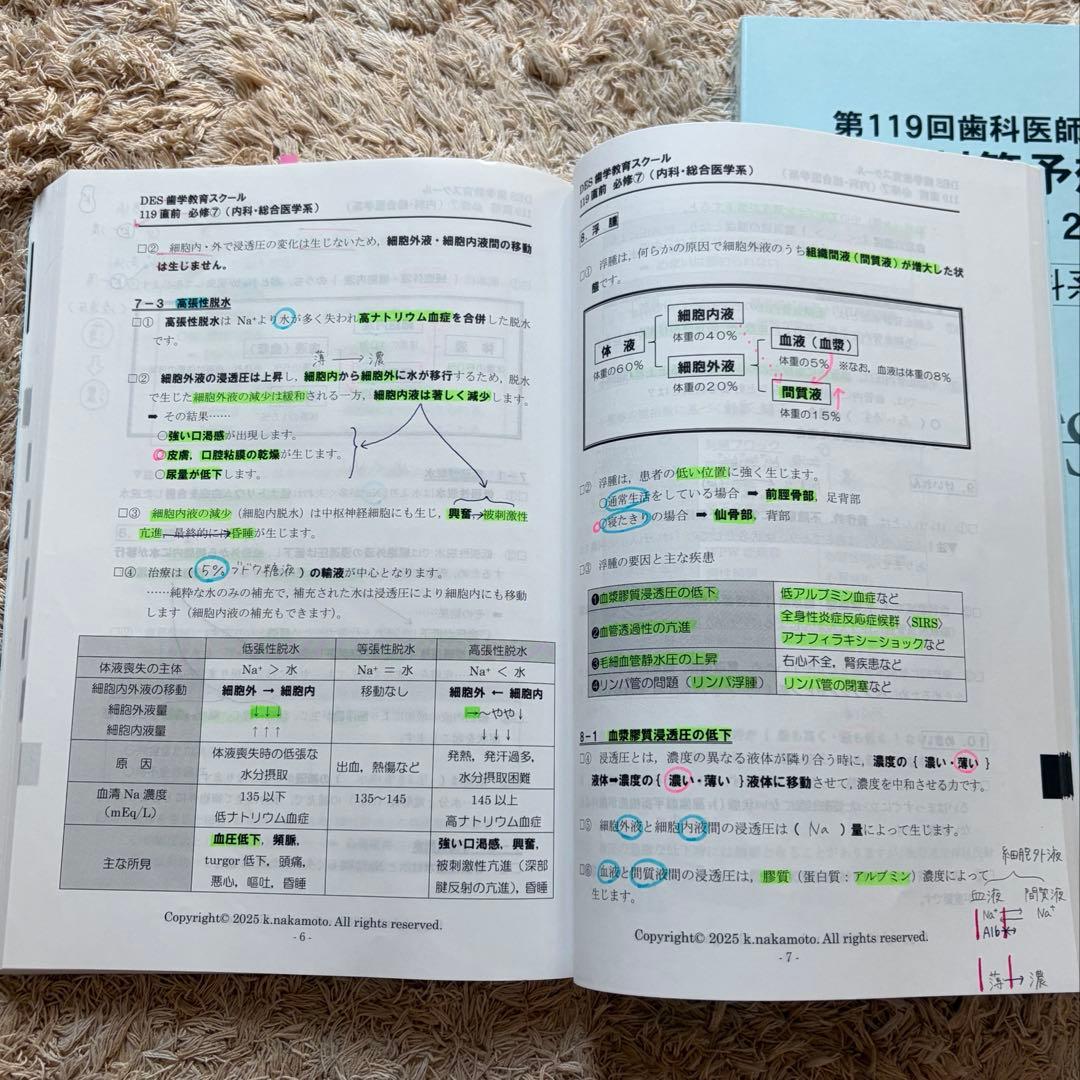 DES 歯学教育スクール
119 直前 必修⑦（内科・総合医学系）
□② 細胞内・外で浸透圧の変化は生じないため，細胞外液・細胞内液間の移動
は生じません。
7－3 高張性脱水
□① 高張性脱水は Na⁺より水が多く失われ高ナトリウム血症を合併した脱水
です。
薄 → 濃
□② 細胞外液の浸透圧は上昇し，細胞内から細胞外に水が移行するため，脱水
で生じた細胞外液の減少は緩和される一方，細胞内液は著しく減少します。
➡ その結果……
○強い口渇感が出現します。
○皮膚，口腔粘膜の乾燥が生じます。
○尿量が低下します。
□③ 細胞内液の減少（細胞内脱水）は中枢神経細胞にも生じ，興奮→被刺激性
亢進，最終的には昏睡が生じます。
□④ 治療は（5%ブドウ糖液）の輸液が中心となります。
……純粋な水のみの補充で，補充された水は浸透圧により細胞内にも移動
します（細胞内液の補充もできます）。
低張性脱水 等張性脱水 高張性脱水
体液喪失の主体 Na⁺ ＞ 水 Na⁺ ＝ 水 Na⁺ ＜ 水
細胞内外液の移動 細胞外 → 細胞内 移動なし 細胞外 ← 細胞内
細胞外液量 ↓↓↓ →～やや↓
細胞内液量 ↑↑↑ ↓↓↓
原 因 体液喪失時の低張な 出血，熱傷など 発熱，発汗過多，
水分摂取 水分摂取困難
血清 Na 濃度 135 以下 135～145 145 以上
（mEq/L） 低ナトリウム血症 高ナトリウム血症
主な所見 血圧低下，頻脈， 強い口渇感，興奮，
turgor 低下，頭痛， 被刺激性亢進（深部
悪心，嘔吐，昏睡 腱反射の亢進），昏睡
Copyright© 2025 k.nakamoto. All rights reserved.
- 6 -
DES 歯学教育スクール
119 直前 必修⑦（内科・総合医学系）
8．浮 腫
□① 浮腫は，何らかの原因で細胞外液のうち組織間液（間質液）が増大した状
態です。
細胞内液
体重の40%
体 液
体重の60%
細胞外液
体重の20%
血液（血漿）
体重の5% ※なお，血液は体重の8%
間質液
体重の15%
□② 浮腫は，患者の低い位置に強く生じます。
○通常生活をしている場合 ➡ 前脛骨部，足背部
○寝たきりの場合 ➡ 仙骨部，背部
□③ 浮腫の要因と主な疾患
❶血漿膠質浸透圧の低下 低アルブミン血症など
❷血管透過性の亢進 全身性炎症反応症候群〈SIRS〉
アナフィラキシーショックなど
❸毛細血管静水圧の上昇 右心不全，腎疾患など
❹リンパ管の問題（リンパ浮腫） リンパ管の閉塞など
8－1 血漿膠質浸透圧の低下
□④ 浸透圧とは，濃度の異なる液体が隣り合う時に，濃度の｛ 濃い・薄い ｝
液体➡濃度の｛ 濃い・薄い ｝液体に移動させて，濃度を中和させる力です。
□⑤ 細胞外液と細胞内液間の浸透圧は（ Na ）量によって生じます。
□⑥ 血液と間質液間の浸透圧は，膠質（蛋白質：アルブミン）濃度によって
生じます。
細胞外液
血液 間質液
Na⁺ Na⁺
Alb
薄 → 濃
Copyright© 2025 k.nakamoto. All rights reserved.
- 7 -
第119回歯科医師